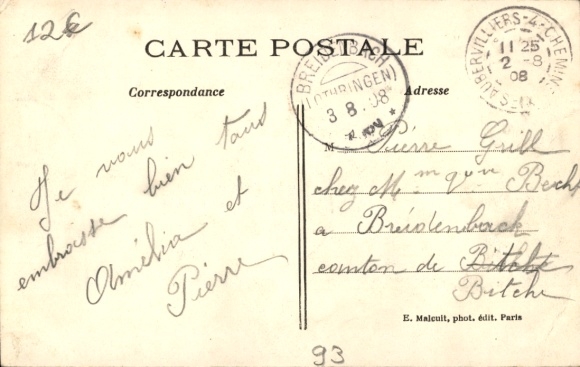 12€
CARTE POSTALE
Correspondance
Adresse
BREIDENBACH
(LOTHRINGEN)
3 8 08
AUBERVILLIERS-4-CHEMINS
11 25
2 - 8
08
SEINE
Je vous
embrasse bien tous
Amélia et
Pierre
M Pierre Grill
chez Mme
a Breidenback
canton de Bitche
Bitche
E. Malcuit, phot. édit. Paris
93